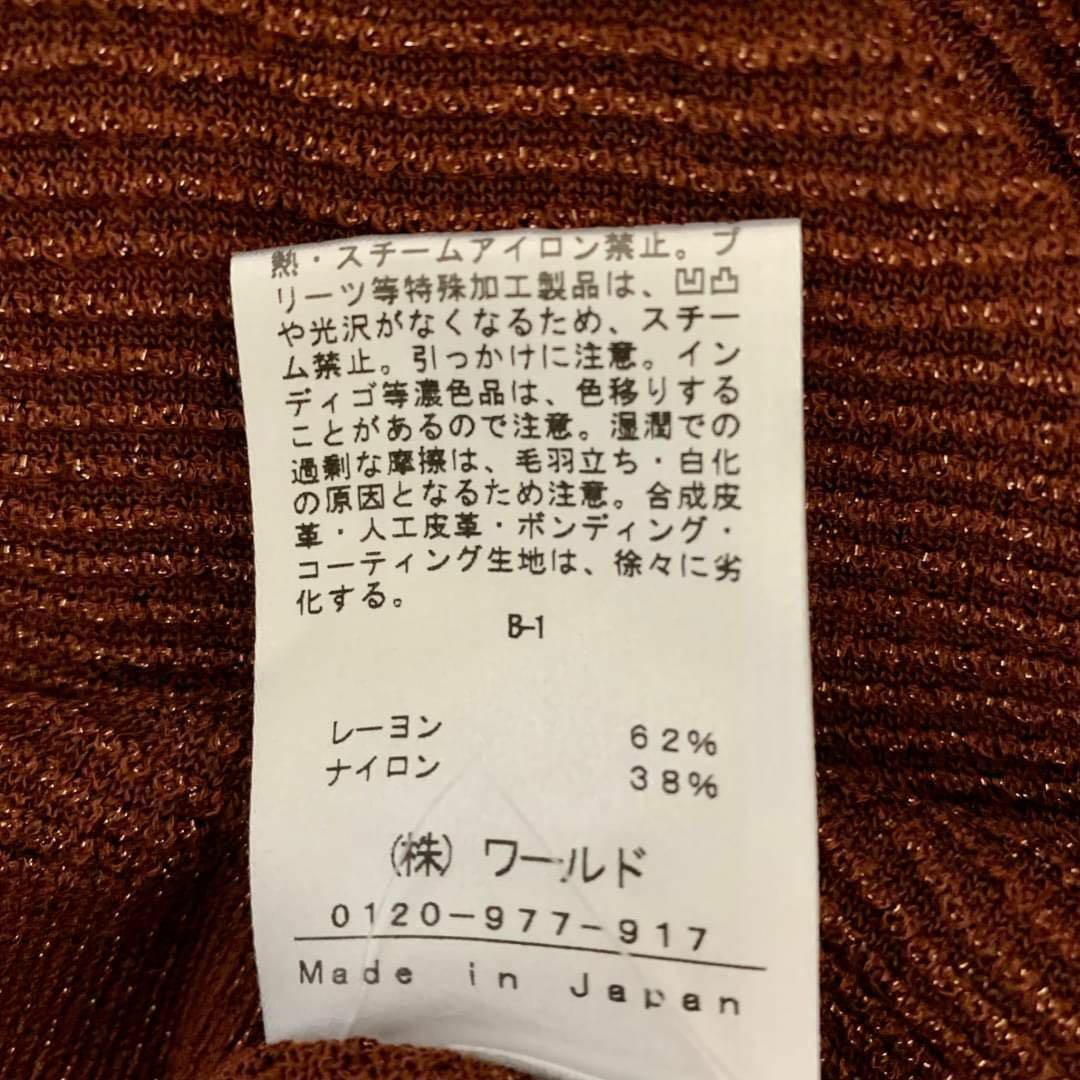 熱・スチームアイロン禁止。プ
リーツ等特殊加工製品は、凹凸
や光沢がなくなるため、スチー
ム禁止。引っかけに注意。イン
ディゴ等濃色品は、色移りする
ことがあるので注意。湿潤での
過剰な摩擦は、毛羽立ち・白化
の原因となるため注意。合成皮
革・人工皮革・ボンディング・
コーティング生地は、徐々に劣
化する。
B-1
レーヨン 62%
ナイロン 38%
(株) ワールド
0120-977-917
Made in Japan